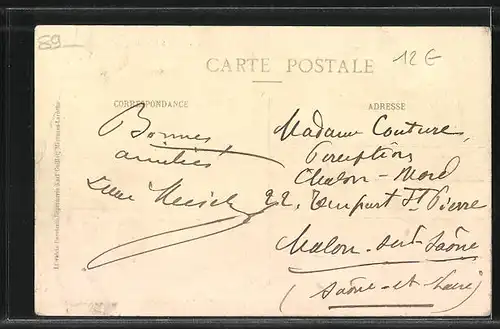 89
12 €
CARTE POSTALE
CORRESPONDANCE
ADRESSE
Bonnes
amitiés
Madame Couture
Perception
Chalon - Nord
22, Rempart St Pierre
Chalon-sur-Saône
(Saône-et-Loire)